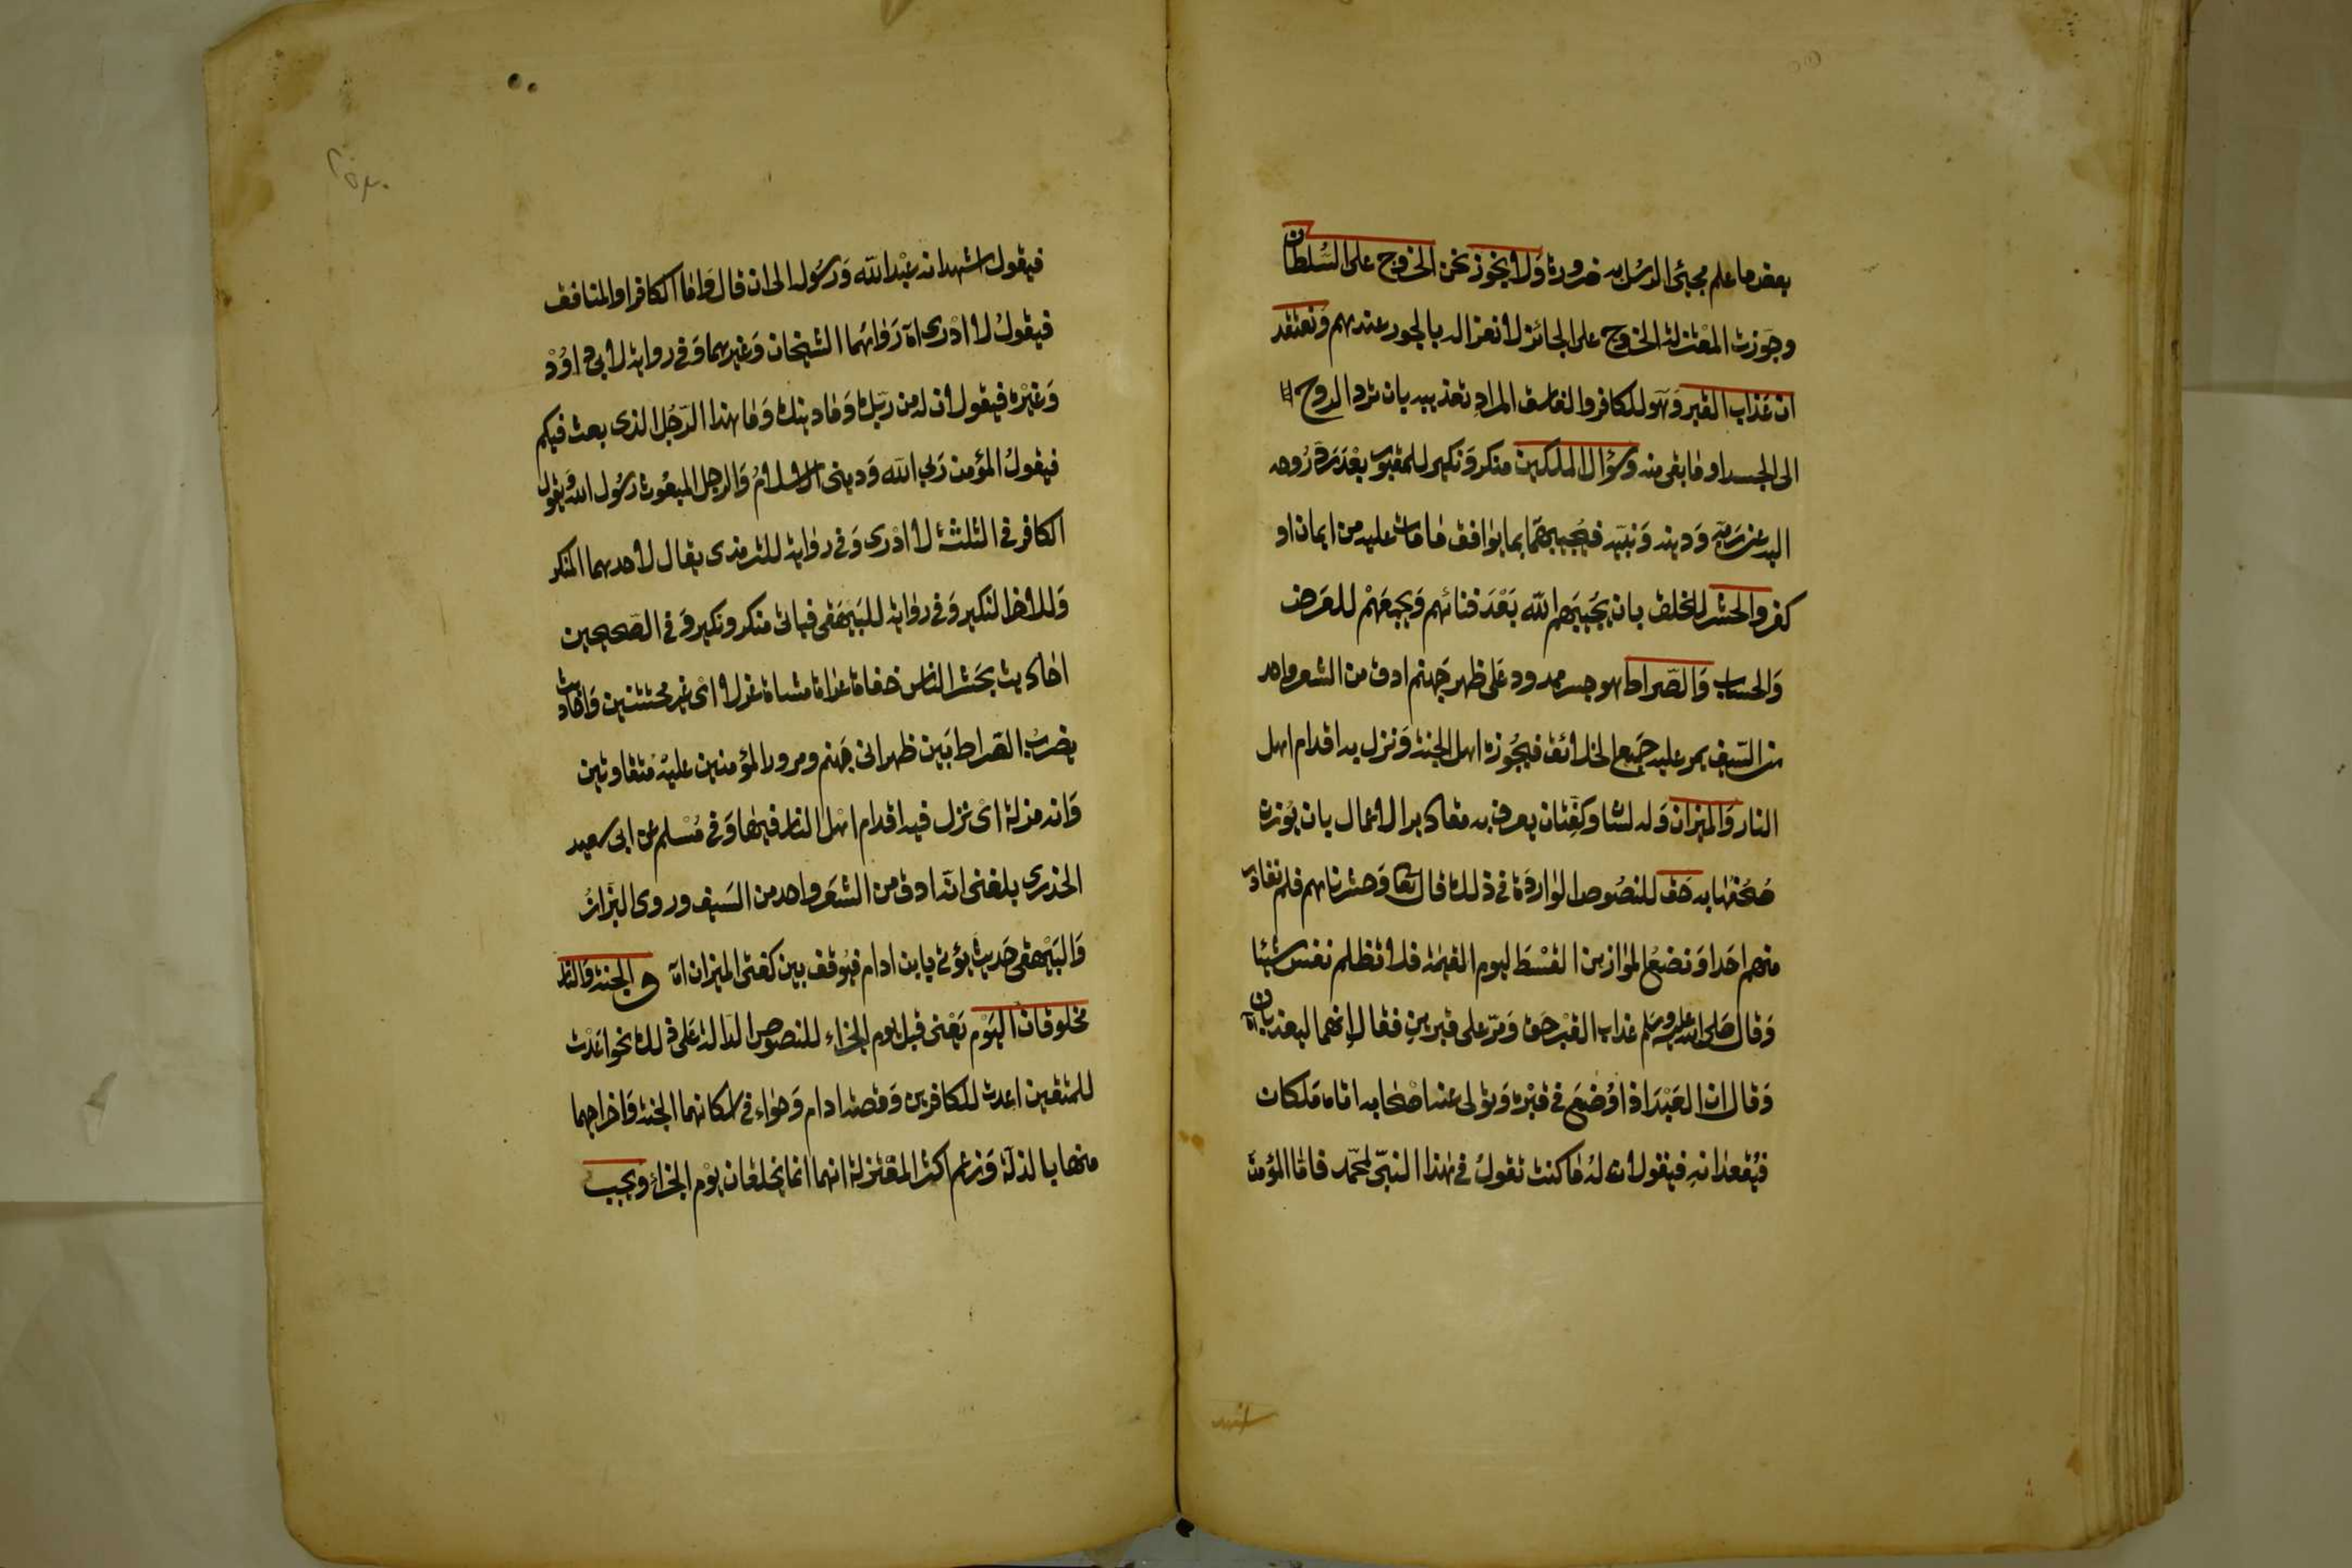 بعض ما علم مجيئ الرسل به ضرورة ولا نجوز نحن الخروج على السلطان
وجوزت المعتزلة الخروج على الجائز لانعزاله بالجور عندهم ونعتقد
ان عذاب القبر وهو للكافر والفاسق المراد تعذيبه بان ترد الروح
الى الجسد او ما بقى منه وسؤال الملكين منكر ونكير للمقبور بعد رد روحه
اليه عن ربه ودينه ونبيه فيجيبهما بما يوافق ما مات عليه من ايمان او
كفر والحشر للخلق بان يحييهم الله بعد فنائهم ويجمعهم للعرض
والحساب والصراط هو جسر ممدود على ظهر جهنم ادق من الشعر واحد
من السيف يمر عليه جميع الخلائق فيجوزه اهل الجنة وتزل به اقدام اهل
النار والميزان وله لسان وكفتان يعرف به مقادير الاعمال بان يوزن
صحفها به حق للنصوص الواردة في ذلك قال تعا وحشرناهم فلم نغادر
منهم احدا ونضع الموازين القسط ليوم القيمة فلا تظلم نفس شيئا
وقال صلى الله عليه وسلم عذاب القبر حق ومر على قبرين فقال انهما ليعذبان اه
وقال ان العبد اذا وضع في قبره وتولى عنه اصحابه اتاه ملكان
فيقعدانه فيقولان له ما كنت تقول في هذا النبى محمد فاما المؤمن
فيقول اشهد انه عبد الله ورسوله الى ان قال واما الكافر او المنافق
فيقول لا ادرى اه رواهما الشيخان وغيرهما وفي رواية لابي داود
وغيره فيقولان له من ربك وما دينك وما هذا الرجل الذى بعث فيكم
فيقول المؤمن ربي الله ودينى الاسلام والرجل المبعوث رسول الله ويقول
الكافر في الثلثة لا ادرى وفي رواية للترمذى يقال لاحدهما المنكر
وللاخر النكير وفي رواية للبيهقى فياتى منكر ونكير وفي الصحيحين
احاديث يحشر الناس حفاة عراة مشاة غرلا اى غير مختتنين واحاديث
يضرب الصراط بين ظهرانى جهنم ومرور المؤمنين عليه متفاوتين
وانه مزلة اى تزل فيه اقدام اهل النار فيها وفي مسلم عن ابى سعيد
الخذرى بلغنى انه ادق من الشعر واحد من السيف وروى البزار
والبيهقى حديث يؤتى يابن ادام فيوقف بين كفتى الميزان اه و الجنة والنار
مخلوقان اليوم يعنى قبل يوم الجزاء للنصوص الدالة على ذلك نحو اعدت
للمتقين اعدت للكافرين وقصة ادام وحواء في اسكانهما الجنة واخراجهما
منها بالذلة وزعم اكثر المعتزلة انهما انما يخلقان يوم الجزاء ويجب